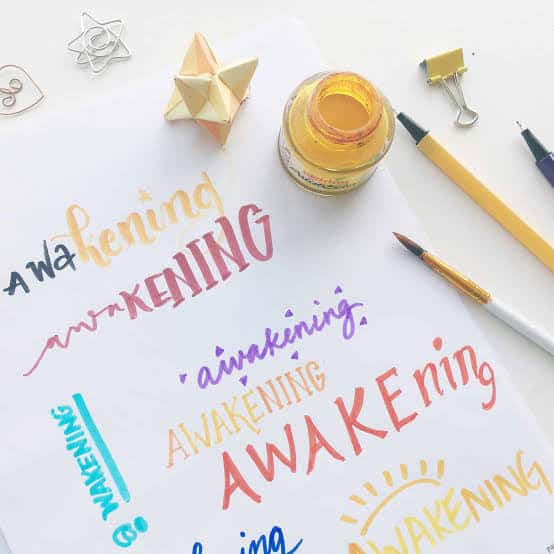 Awakening
awaKENING
awakening
AWAKENING
AWAKEning
@WAKENING
AWAKENING